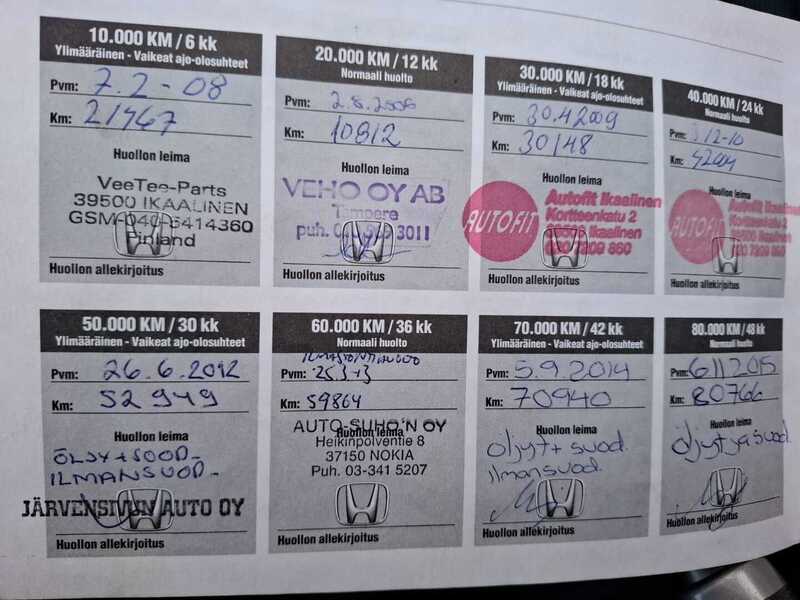 10.000 KM / 6 kk
Ylimääräinen - Vaikeat ajo-olosuhteet
Pvm: 7.2-08
Km: 21467
Huollon leima
VeeTee-Parts
39500 IKAALINEN
GSM-040-5414360
Finland
Huollon allekirjoitus
20.000 KM / 12 kk
Normaali huolto
Pvm:
Km: 10812
Huollon leima
VEHO OY AB
Tampere
puh. 3011
Huollon allekirjoitus
30.000 KM / 18 kk
Ylimääräinen - Vaikeat ajo-olosuhteet
Pvm: 30.4 2009
Km: 30148
Huollon leima
AUTOFIT
Autofit Ikaalinen
Kortteenkatu 2
Ikaalinen
7209 860
Huollon allekirjoitus
40.000 KM / 24 kk
Normaali huolto
Pvm: 12-10
Km:
Huollon leima
AUTOFIT
Autofit Ikaalinen
Kortteenkatu 2
Ikaalinen
7209 860
Huollon allekirjoitus
50.000 KM / 30 kk
Ylimääräinen - Vaikeat ajo-olosuhteet
Pvm: 26.6.2012
Km: 52949
Huollon leima
ÖLJY+SUOD-
ILMANSUOD-
JÄRVENSIVUN AUTO OY
Huollon allekirjoitus
60.000 KM / 36 kk
Normaali huolto
Pvm:
Km: 59864
Huollon leima
AUTO-SUHO'N OY
Heikinpolventie 8
37150 NOKIA
Puh. 03-341 5207
Huollon allekirjoitus
70.000 KM / 42 kk
Ylimääräinen - Vaikeat ajo-olosuhteet
Pvm: 5.9.2014
Km: 70940
Huollon leima
öljyt+ suod.
ilmansuod.
Huollon allekirjoitus
80.000 KM / 48 kk
Normaali huolto
Pvm: 6.11.2015
Km: 80766
Huollon leima
öljyt ja suod.
Huollon allekirjoitus